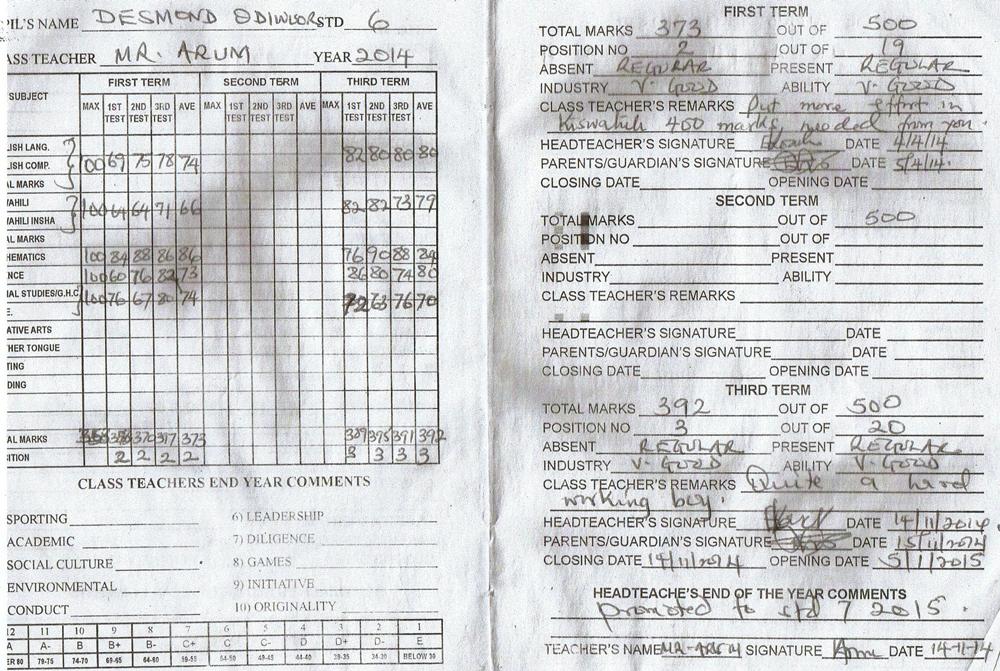 PIL'S NAME DESMOND ODIWUOR STD 6
ASS TEACHER MR. ARUM YEAR 2014
SUBJECT FIRST TERM SECOND TERM THIRD TERM
MAX 1ST TEST 2ND TEST 3RD TEST AVE MAX 1ST TEST 2ND TEST 3RD TEST AVE MAX 1ST TEST 2ND TEST 3RD TEST AVE
LISH LANG.
LISH COMP. 100 69 75 78 74 82 80 80 80
AL MARKS
AHILI
AHILI INSHA 100 64 64 71 66 82 82 73 79
AL MARKS
HEMATICS 100 84 88 86 86 76 90 88 84
NCE 100 60 76 82 73 86 80 74 80
IAL STUDIES/G.H.C 100 76 67 80 74 72 63 76 70
E.
ATIVE ARTS
HER TONGUE
TING
DING
AL MARKS 370 397 373 395 391 392
ITION 2 2 2 2 3 3 3 3
CLASS TEACHERS END YEAR COMMENTS
SPORTING 6) LEADERSHIP
ACADEMIC 7) DILIGENCE
SOCIAL CULTURE 8) GAMES
ENVIRONMENTAL 9) INITIATIVE
CONDUCT 10) ORIGINALITY
12 11 10 9 8 7 6 5 4 3 2 1
A A- B B+ B- C+ C C- D D+ D- E
ER 80 79-75 74-70 69-65 64-60 59-55 54-50 49-45 44-40 39-35 34-30 BELOW 30
FIRST TERM
TOTAL MARKS 373 OUT OF 500
POSITION NO 2 OUT OF 19
ABSENT REGULAR PRESENT REGULAR
INDUSTRY V. GOOD ABILITY V. GOOD
CLASS TEACHER'S REMARKS Put more effort in
Kiswahili 400 marks needed from you.
HEADTEACHER'S SIGNATURE DATE 4/4/14
PARENTS/GUARDIAN'S SIGNATURE DATE 5/4/14.
CLOSING DATE OPENING DATE
SECOND TERM
TOTAL MARKS OUT OF 500
POSITION NO OUT OF
ABSENT PRESENT
INDUSTRY ABILITY
CLASS TEACHER'S REMARKS
HEADTEACHER'S SIGNATURE DATE
PARENTS/GUARDIAN'S SIGNATURE DATE
CLOSING DATE OPENING DATE
THIRD TERM
TOTAL MARKS 392 OUT OF 500
POSITION NO 3 OUT OF 20
ABSENT REGULAR PRESENT REGULAR
INDUSTRY V. GOOD ABILITY V. GOOD
CLASS TEACHER'S REMARKS Quite a hard
working boy.
HEADTEACHER'S SIGNATURE DATE 14/11/2014
PARENTS/GUARDIAN'S SIGNATURE DATE 15/11/2014
CLOSING DATE 14/11/2014 OPENING DATE 5/1/2015
HEADTEACHE'S END OF THE YEAR COMMENTS
promoted to std 7 2015.
TEACHER'S NAME MR. ARUM SIGNATURE DATE 14-11-14